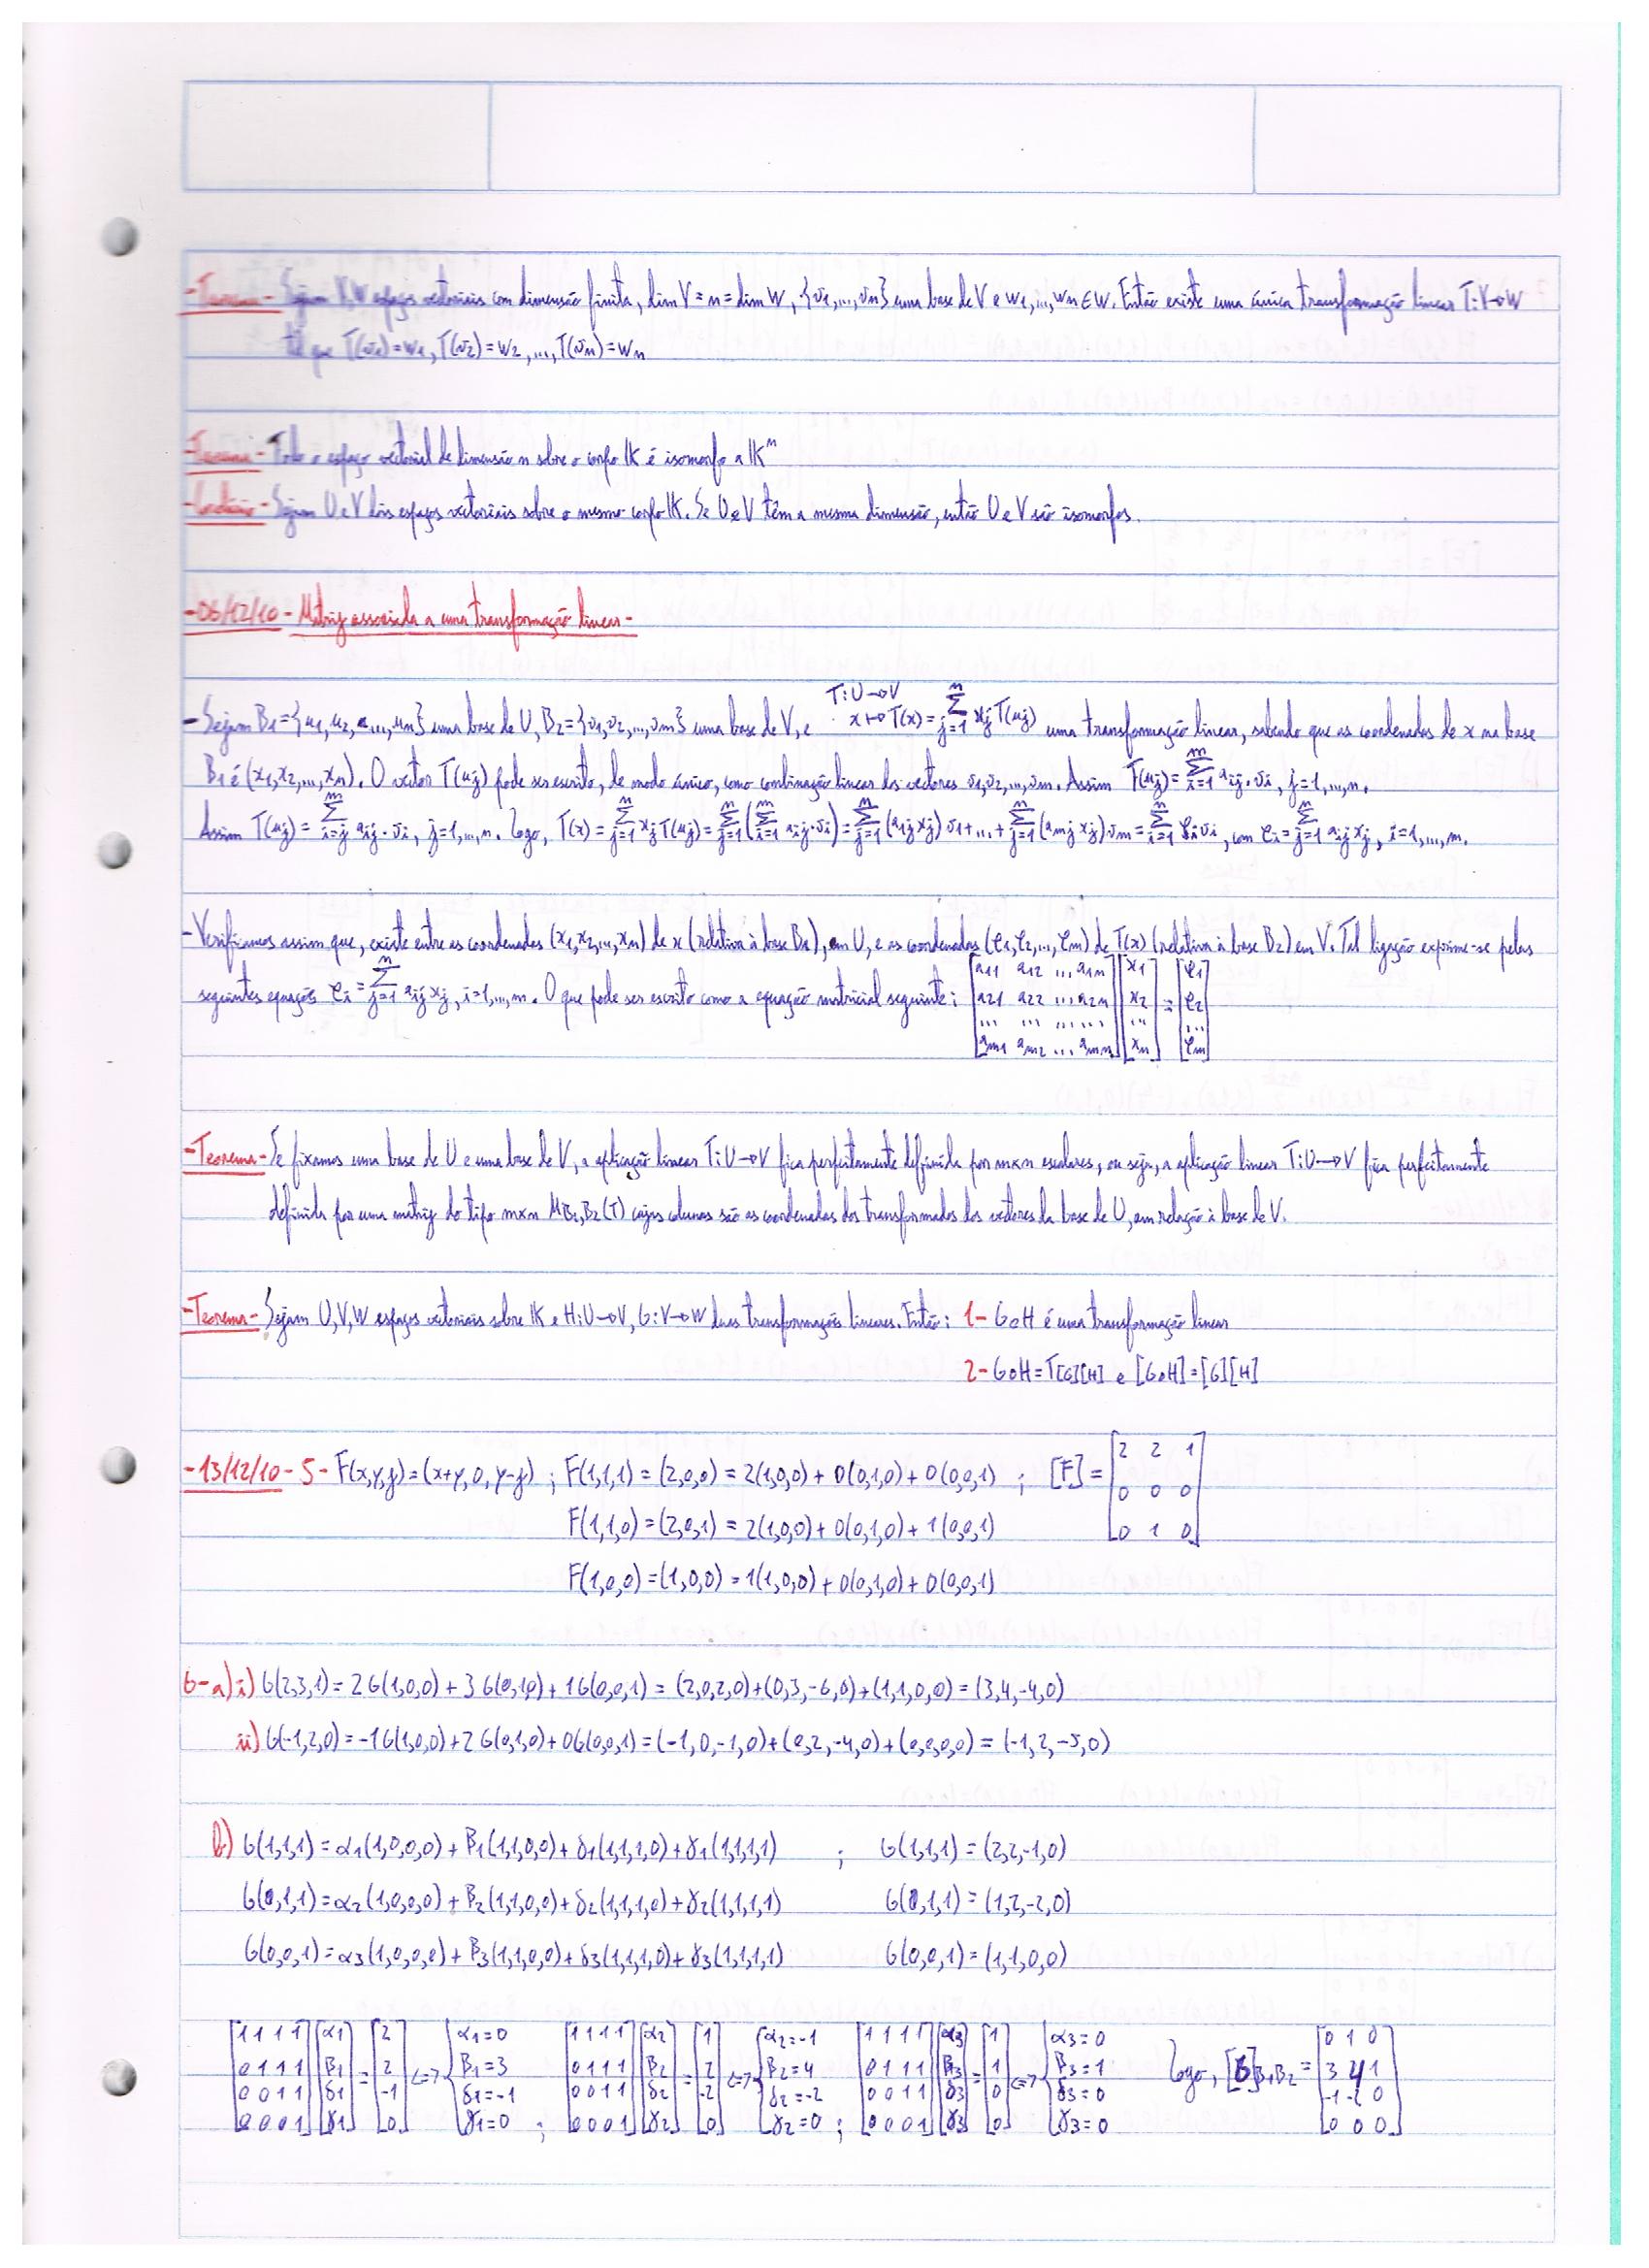 -Teorema- Sejam V,W espaços vectoriais com dimensão finita, dim V = n = dim W, {v1,...,vn} uma base de V e w1,...,wn ∈ W. Então existe uma única transformação linear T:V→W
tal que T(v1)=w1, T(v2)=w2,...,T(vn)=wn
-Teorema- Todo o espaço vectorial de dimensão n sobre o corpo IK é isomorfo a IK^n
-Corolário- Sejam U e V dois espaços vectoriais sobre o mesmo corpo IK. Se U e V têm a mesma dimensão, então U e V são isomorfos.
-06/12/10- Matriz associada a uma transformação linear-
-Sejam B1={u1,u2,...,un} uma base de U, B2={v1,v2,...,vm} uma base de V, e T:U→V x↦T(x)=∑_{j=1}^{n} xj T(uj) uma transformação linear, sabendo que as coordenadas de x na base
B1 é (x1,x2,...,xn). O vector T(uj) pode ser escrito, de modo único, como combinação linear dos vectores v1,v2,...,vm. Assim T(uj)=∑_{i=1}^{m} aij·vi, j=1,...,n.
Assim T(uj)=∑_{i=j}^{m} aij·vi, j=1,...,n. Logo, T(x)=∑_{j=1}^{n} xj T(uj)=∑_{j=1}^{n}(∑_{i=1}^{m} aij·vi)=∑_{j=1}^{n}(a1j xj)v1+...+∑_{j=1}^{n}(amj xj)vm=∑_{i=1}^{m} φi vi, com φi=∑_{j=1}^{n} aij xj, i=1,...,m.
-Verificamos assim que, existe entre as coordenadas (x1,x2,...,xn) de x (relativa à base B1), em U, e as coordenadas (φ1,φ2,...,φm) de T(x) (relativa à base B2) em V. Tal ligação exprime-se pelas
seguintes equações φi=∑_{j=1}^{n} aij xj, i=1,...,m. O que pode ser escrito como a equação matricial seguinte: [a11 a12 ... a1n; a21 a22 ... a2n; ... ... ... ...; am1 am2 ... amn][x1; x2; ...; xn]=[φ1; φ2; ...; φm]
-Teorema- Se fixamos uma base de U e uma base de V, a aplicação linear T:U→V fica perfeitamente definida por m×n escalares, ou seja, a aplicação linear T:U→V fica perfeitamente
definida por uma matriz do tipo m×n MB1,B2(T) cujas colunas são as coordenadas dos transformados dos vectores da base de U, em relação à base de V.
-Teorema- Sejam U,V,W espaços vectoriais sobre IK e H:U→V, G:V→W duas transformações lineares. Então: 1- GoH é uma transformação linear
2- GoH=T[G][H] e [GoH]=[G][H]
-13/12/10-5- F(x,y,z)=(x+y,0,y-z) ; F(1,1,1)=(2,0,0)=2(1,0,0)+0(0,1,0)+0(0,0,1) ; [F]=[2 2 1; 0 0 0; 0 1 0]
F(1,1,0)=(2,0,1)=2(1,0,0)+0(0,1,0)+1(0,0,1)
F(1,0,0)=(1,0,0)=1(1,0,0)+0(0,1,0)+0(0,0,1)
6-a)i) G(2,3,1)=2G(1,0,0)+3G(0,1,0)+1G(0,0,1)=(2,0,2,0)+(0,3,-6,0)+(1,1,0,0)=(3,4,-4,0)
ii) G(-1,2,0)=-1G(1,0,0)+2G(0,1,0)+0G(0,0,1)=(-1,0,-1,0)+(0,2,-4,0)+(0,0,0,0)=(-1,2,-5,0)
b) G(1,1,1)=α1(1,0,0,0)+β1(1,1,0,0)+δ1(1,1,1,0)+γ1(1,1,1,1) ; G(1,1,1)=(2,2,-1,0)
G(0,1,1)=α2(1,0,0,0)+β2(1,1,0,0)+δ2(1,1,1,0)+γ2(1,1,1,1) G(0,1,1)=(1,2,-2,0)
G(0,0,1)=α3(1,0,0,0)+β3(1,1,0,0)+δ3(1,1,1,0)+γ3(1,1,1,1) G(0,0,1)=(1,1,0,0)
[1 1 1 1; 0 1 1 1; 0 0 1 1; 0 0 0 1][α1; β1; δ1; γ1]=[2; 2; -1; 0] <=> {α1=0; β1=3; δ1=-1; γ1=0 ; [1 1 1 1; 0 1 1 1; 0 0 1 1; 0 0 0 1][α2; β2; δ2; γ2]=[1; 2; -2; 0] <=> {α2=-1; β2=4; δ2=-2; γ2=0 ; [1 1 1 1; 0 1 1 1; 0 0 1 1; 0 0 0 1][α3; β3; δ3; γ3]=[1; 1; 0; 0] <=> {α3=0; β3=1; δ3=0; γ3=0 Logo, [G]B1,B2=[0 1 0; 3 4 1; -1 -2 0; 0 0 0]